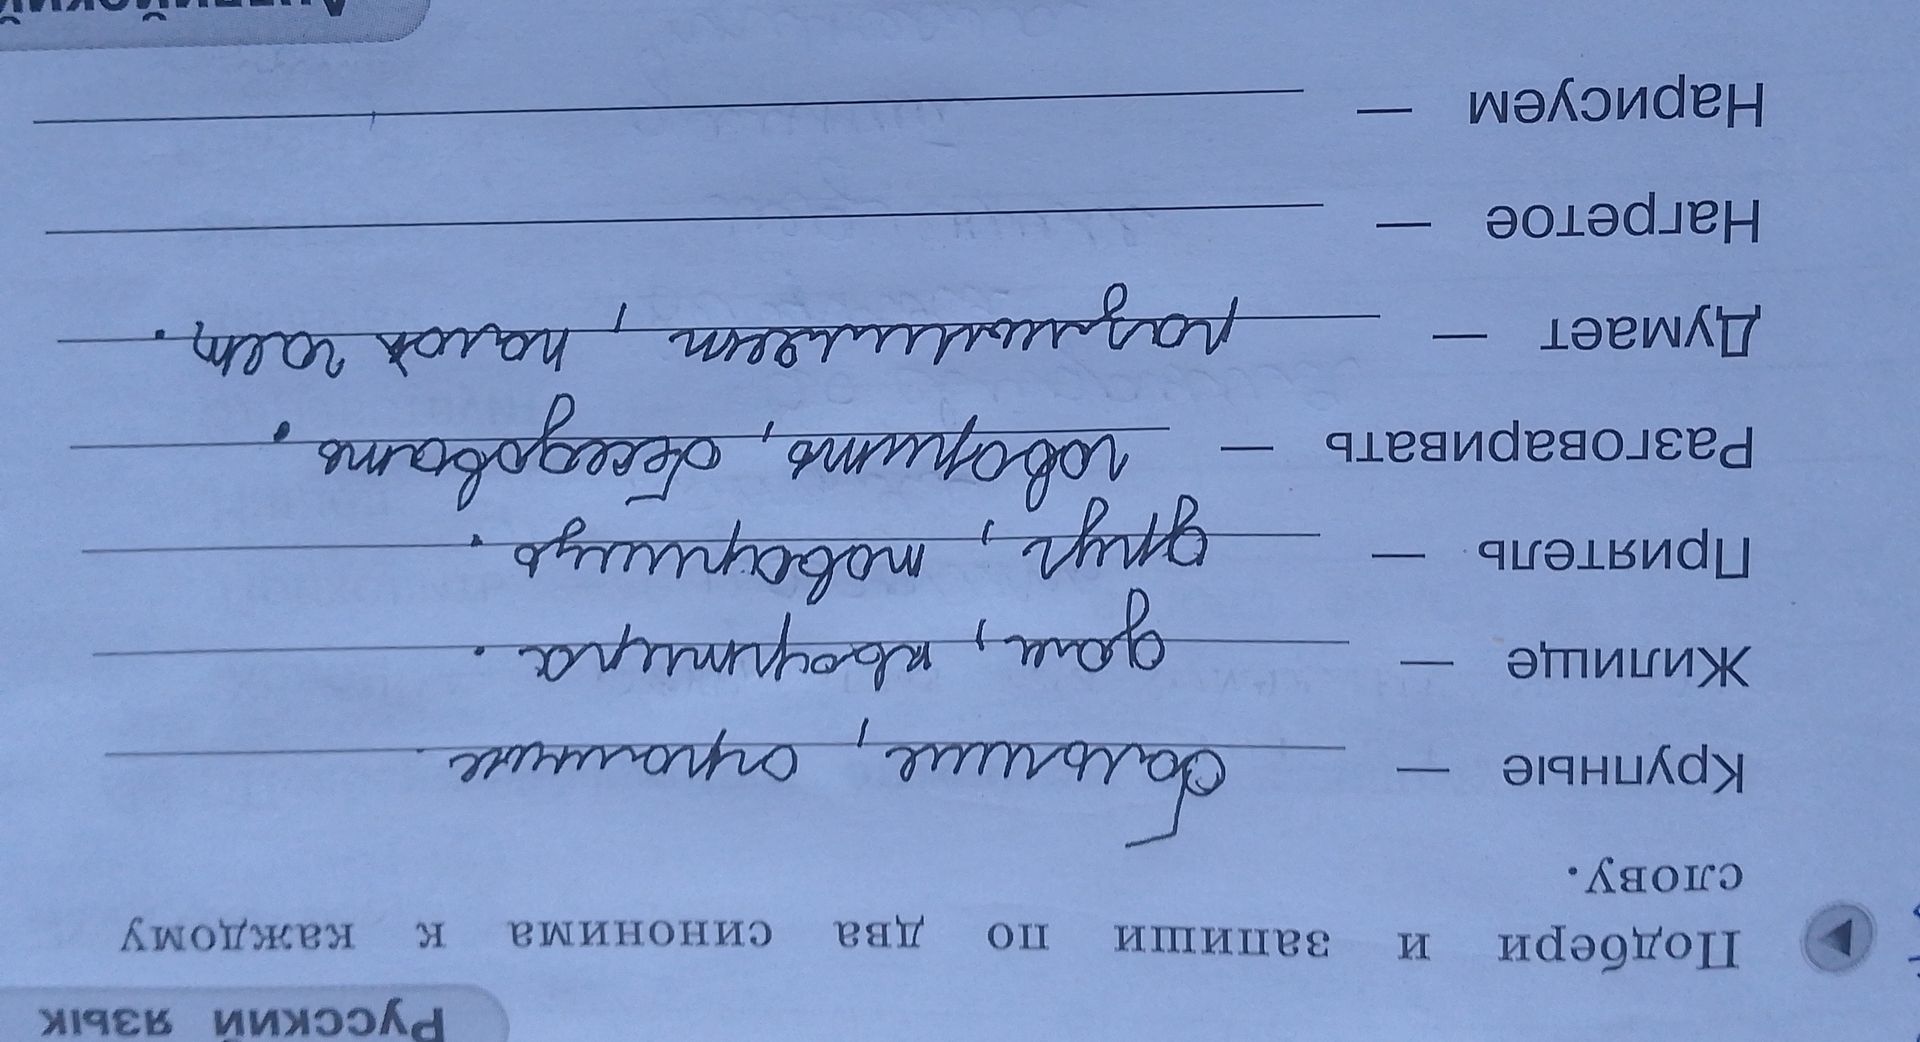 Русский язык
Подбери и запиши по два синонима к каждому
слову.
Крупные — большие, огромные.
Жилище — дом, квартира.
Приятель — друг, товарищь.
Разговаривать — говорить, беседовать.
Думает — размышляет,
Нагретое —
Нарисуем —
Английский